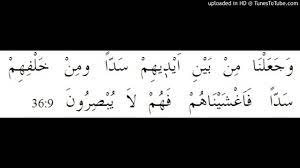 uploaded in HD @ TunesToTube.com
وَجَعَلْنَا مِنْ بَيْنِ اَيْدِيهِمْ سَدّاً وَمِنْ خَلْفِهِمْ
سَدّاً فَاَغْشَيْنَاهُمْ فَهُمْ لاَ يُبْصِرُونَ 36:9